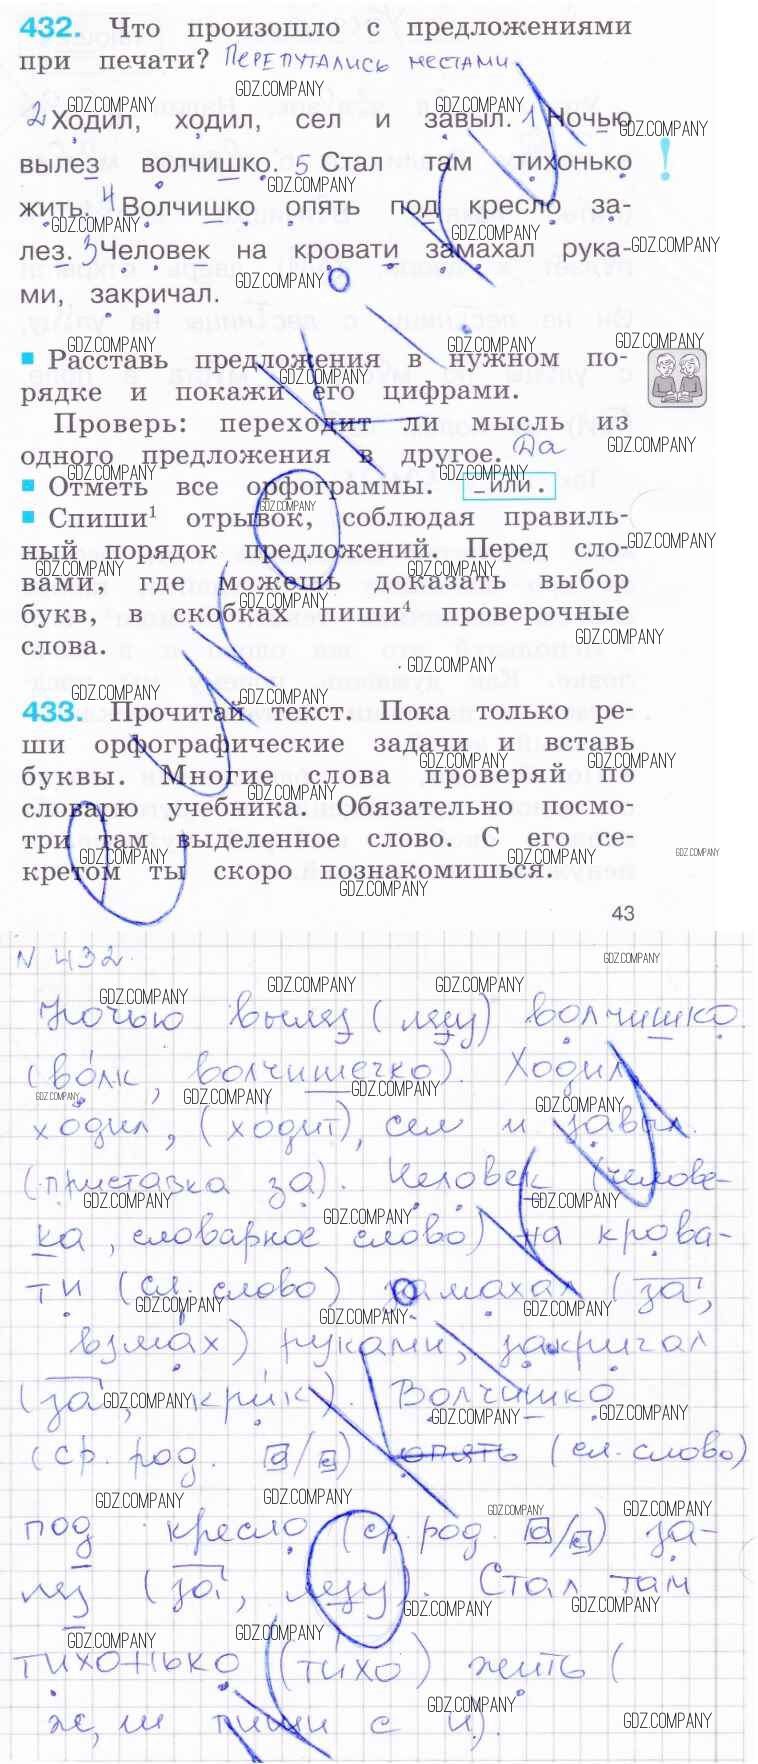 432. Что произошло с предложениями
при печати? Перепутались местами.
2 Ходил, ходил, сел и завыл. 1 Ночью
вылез волчишко. 5 Стал там тихонько !
жить. 4 Волчишко опять под кресло за-
лез. 3 Человек на кровати замахал рука-
ми, закричал.
Расставь предложения в нужном по-
рядке и покажи его цифрами.
Проверь: переходит ли мысль из
одного предложения в другое. Да
Отметь все орфограммы. _ или .
Спиши¹ отрывок, соблюдая правиль-
ный порядок предложений. Перед сло-
вами, где можешь доказать выбор
букв, в скобках пиши⁴ проверочные
слова.
433. Прочитай текст. Пока только ре-
ши орфографические задачи и вставь
буквы. Многие слова проверяй по
словарю учебника. Обязательно посмо-
три там выделенное слово. С его се-
кретом ты скоро познакомишься.
43
N 432.
Ночью вылез (лезу) волчишко.
(волк, волчишечко). Ходил,
ходил, (ходит), сел и завыл.
(приставка за). Человек (челове-
ка, словарное слово) на крова-
ти (сл. слово) замахал (за,
взмах) руками, закричал
(за, крик). Волчишко
(ср. род. о/е) опять (сл. слово)
под кресло (ср. род. о/е) за-
лез (за, лезу). Стал там
тихонько (тихо) жить (
ж, ш пиши с и).
GDZ.COMPANY